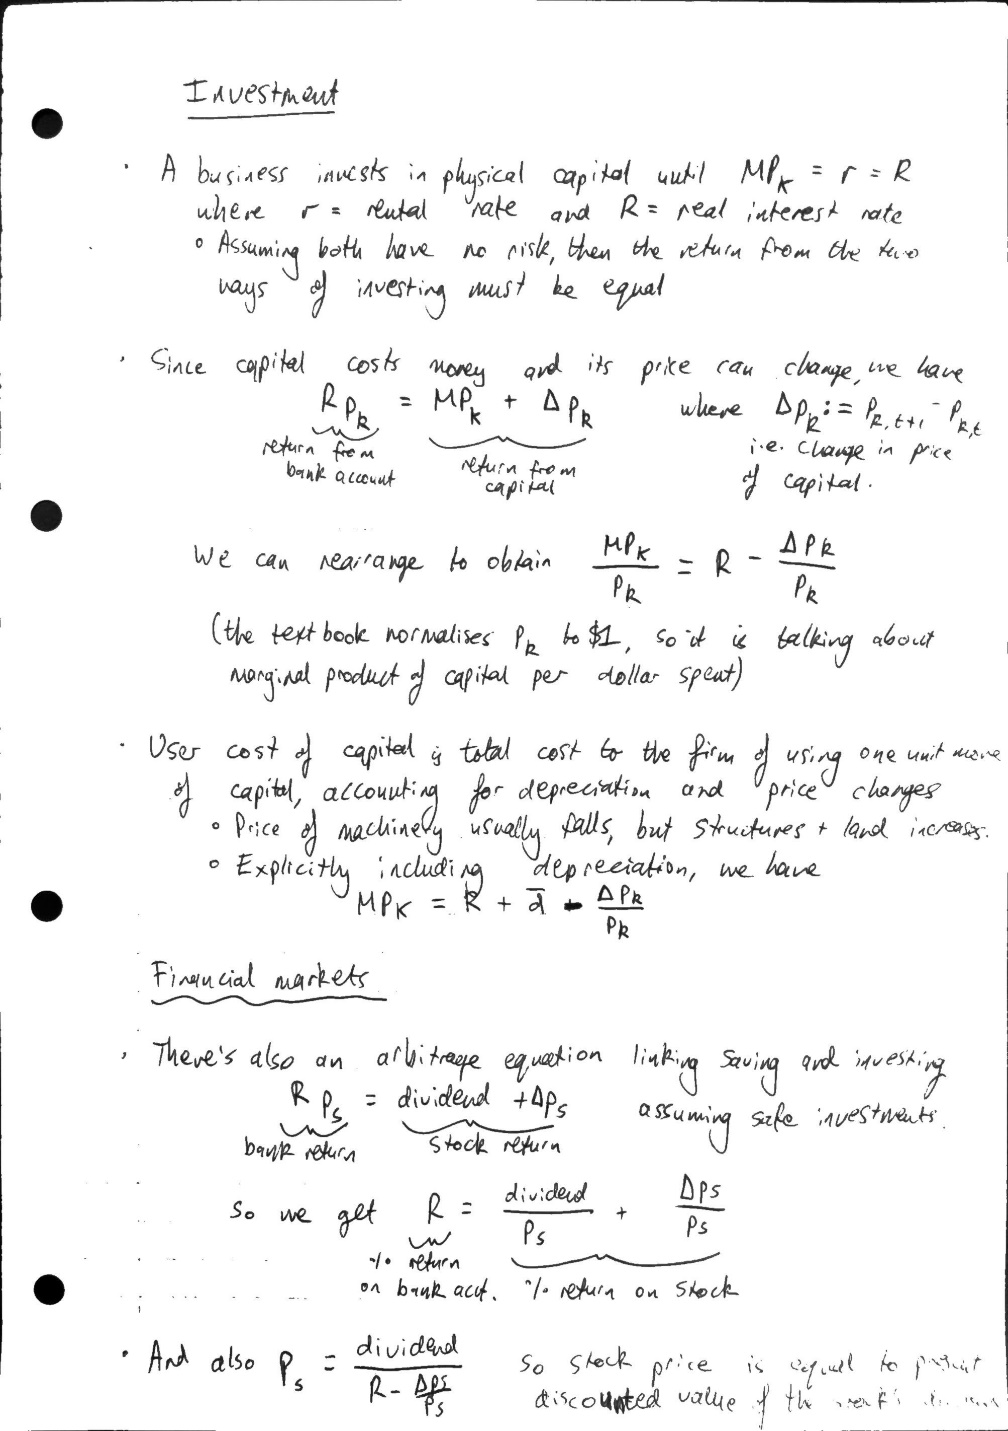 Investment
· A business invests in physical capital until MP_K = r = R
where r = rental rate and R = real interest rate
∘ Assuming both have no risk, then the return from the two
ways of investing must be equal
· Since capital costs money and its price can change, we have
R P_k = MP_k + Δ P_k where ΔP_k := P_k,t+1 - P_k,t
return from bank account return from capital i.e. change in price
of capital.
We can rearrange to obtain MP_K/P_k = R - ΔP_k/P_k
(the textbook normalises P_k to $1, so it is talking about
marginal product of capital per dollar spent)
· User cost of capital is total cost to the firm of using one unit more
of capital, accounting for depreciation and price changes
∘ Price of machinery usually falls, but structures + land increases.
∘ Explicitly including depreciation, we have
MPK = R + d̄ - ΔP_k/P_k
Financial markets
· There's also an arbitrage equation linking saving and investing
R P_s = dividend + ΔP_s assuming safe investments.
bank return stock return
So we get R = dividend/P_s + ΔP_s/P_s
% return
on bank acct. % return on stock
· And also P_s = dividend/(R - ΔP_s/P_s) so stock price is equal to present
discounted value of the